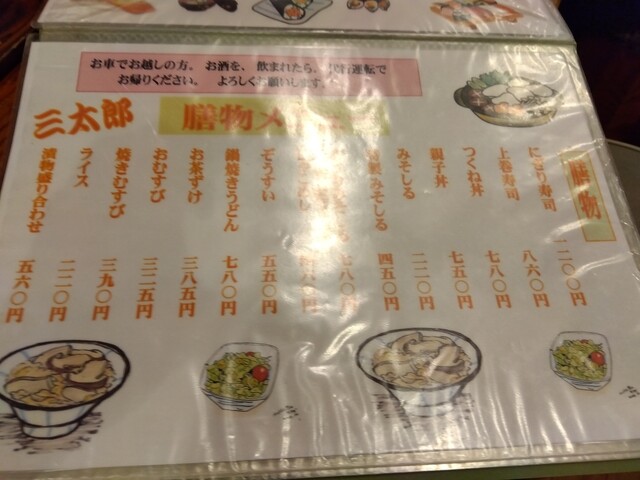 お車でお越しの方。お酒を、飲まれたら、代行運転で
お帰りください。よろしくお願いします。
三太郎
膳物メ
膳物
にぎり寿司 一二〇〇円
上巻寿司 八六〇円
つくね丼 七八〇円
親子丼 七五〇円
みそしる 二二〇円
みそしる 四五〇円
七八〇円
円
ぞうすい 五五〇円
鍋焼きうどん 七八〇円
お茶すけ 三八五円
おむすび 三二五円
焼きむすび 三九〇円
ライス 二二〇円
漬物盛り合わせ 五六〇円